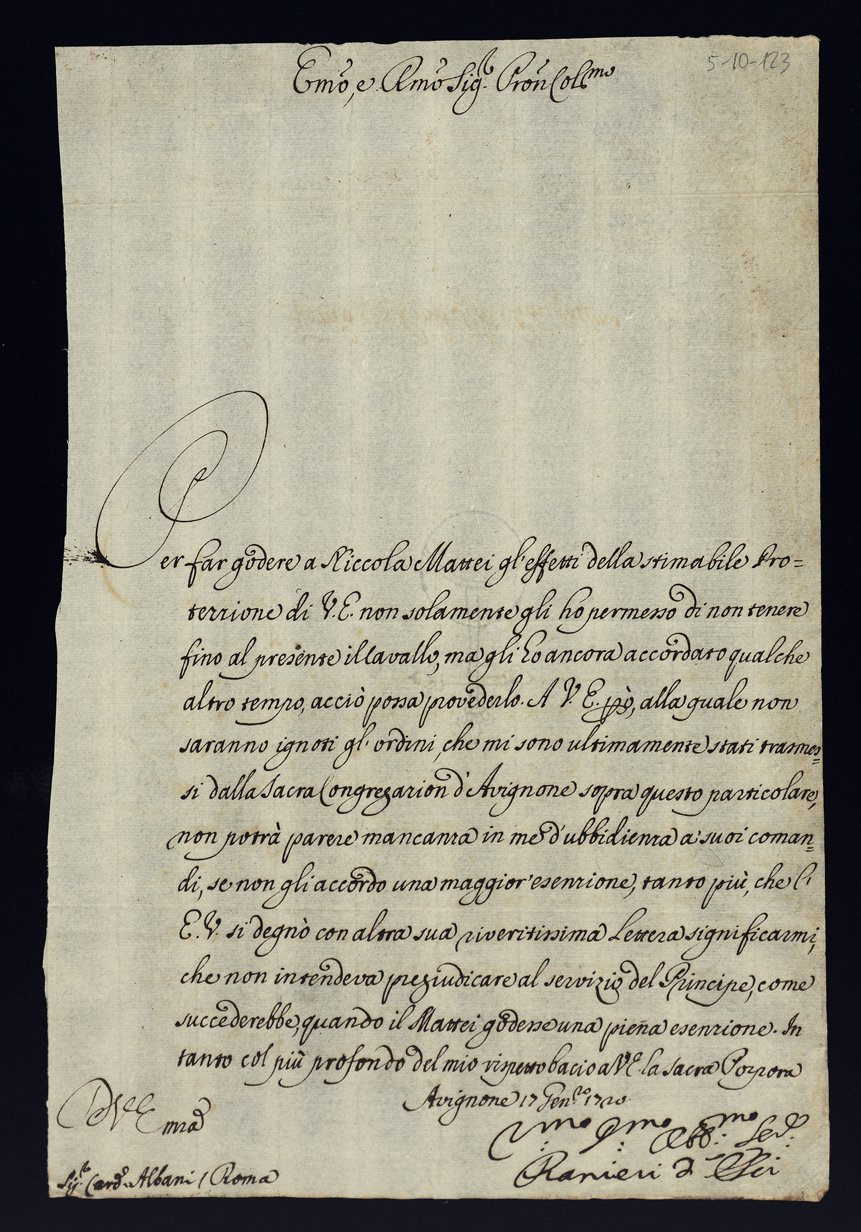 Emo, e Rmo Sig.r Pron Col.mo
5-10-123
Per far godere a Niccola Mattei gl'effetti della stimabile Pro=
tezzione di V.E. non solamente gli ho permesso di non tenere
fino al presente il Cavallo, ma gli ho ancora accordato qualche
altro tempo, acciò possa provederlo. A V.E. però, alla quale non
saranno ignoti gl'ordini, che mi sono ultimamente stati trasmes=
si dalla Sacra Congregazion d'Avignone sopra questo particolare,
non potrà parere mancanza in me d'ubbidienza a suoi coman=
di, se non gli accordo una maggior'esenzione, tanto più, che l'
E.V. si degnò con altra sua riveritissima Lettera significarmi,
che non intendeva pregiudicare al servizio del Principe, come
succederebbe, quando il Mattei godesse una piena esenzione. In
tanto col più profondo del mio rispetto bacio a V.E. la sacra Porpora
Avignone 17 Genn.ro
D V.E Emza
Vmo Dmo Obb.mo Ser.
Sig.r Card. Albani / Roma
Ranieri d'Elci